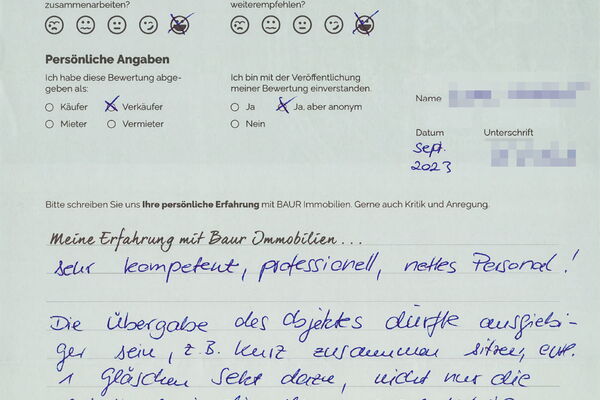 zusammenarbeiten?
weiterempfehlen?
Persönliche Angaben
Ich habe diese Bewertung abge-
geben als:
Käufer Verkäufer
Mieter Vermieter
Ich bin mit der Veröffentlichung
meiner Bewertung einverstanden.
Ja Ja, aber anonym
Nein
Name
Datum Unterschrift
Sept.
2023
Bitte schreiben Sie uns Ihre persönliche Erfahrung mit BAUR Immobilien. Gerne auch Kritik und Anregung.
Meine Erfahrung mit Baur Immobilien...
Sehr kompetent, professionell, nettes Personal!
Die Übergabe des Objektes dürfte ausgiebi-
ger sein, z.B. kurz zusammen sitzen, evt.
1 Gläschen Sekt dazu, nicht nur die